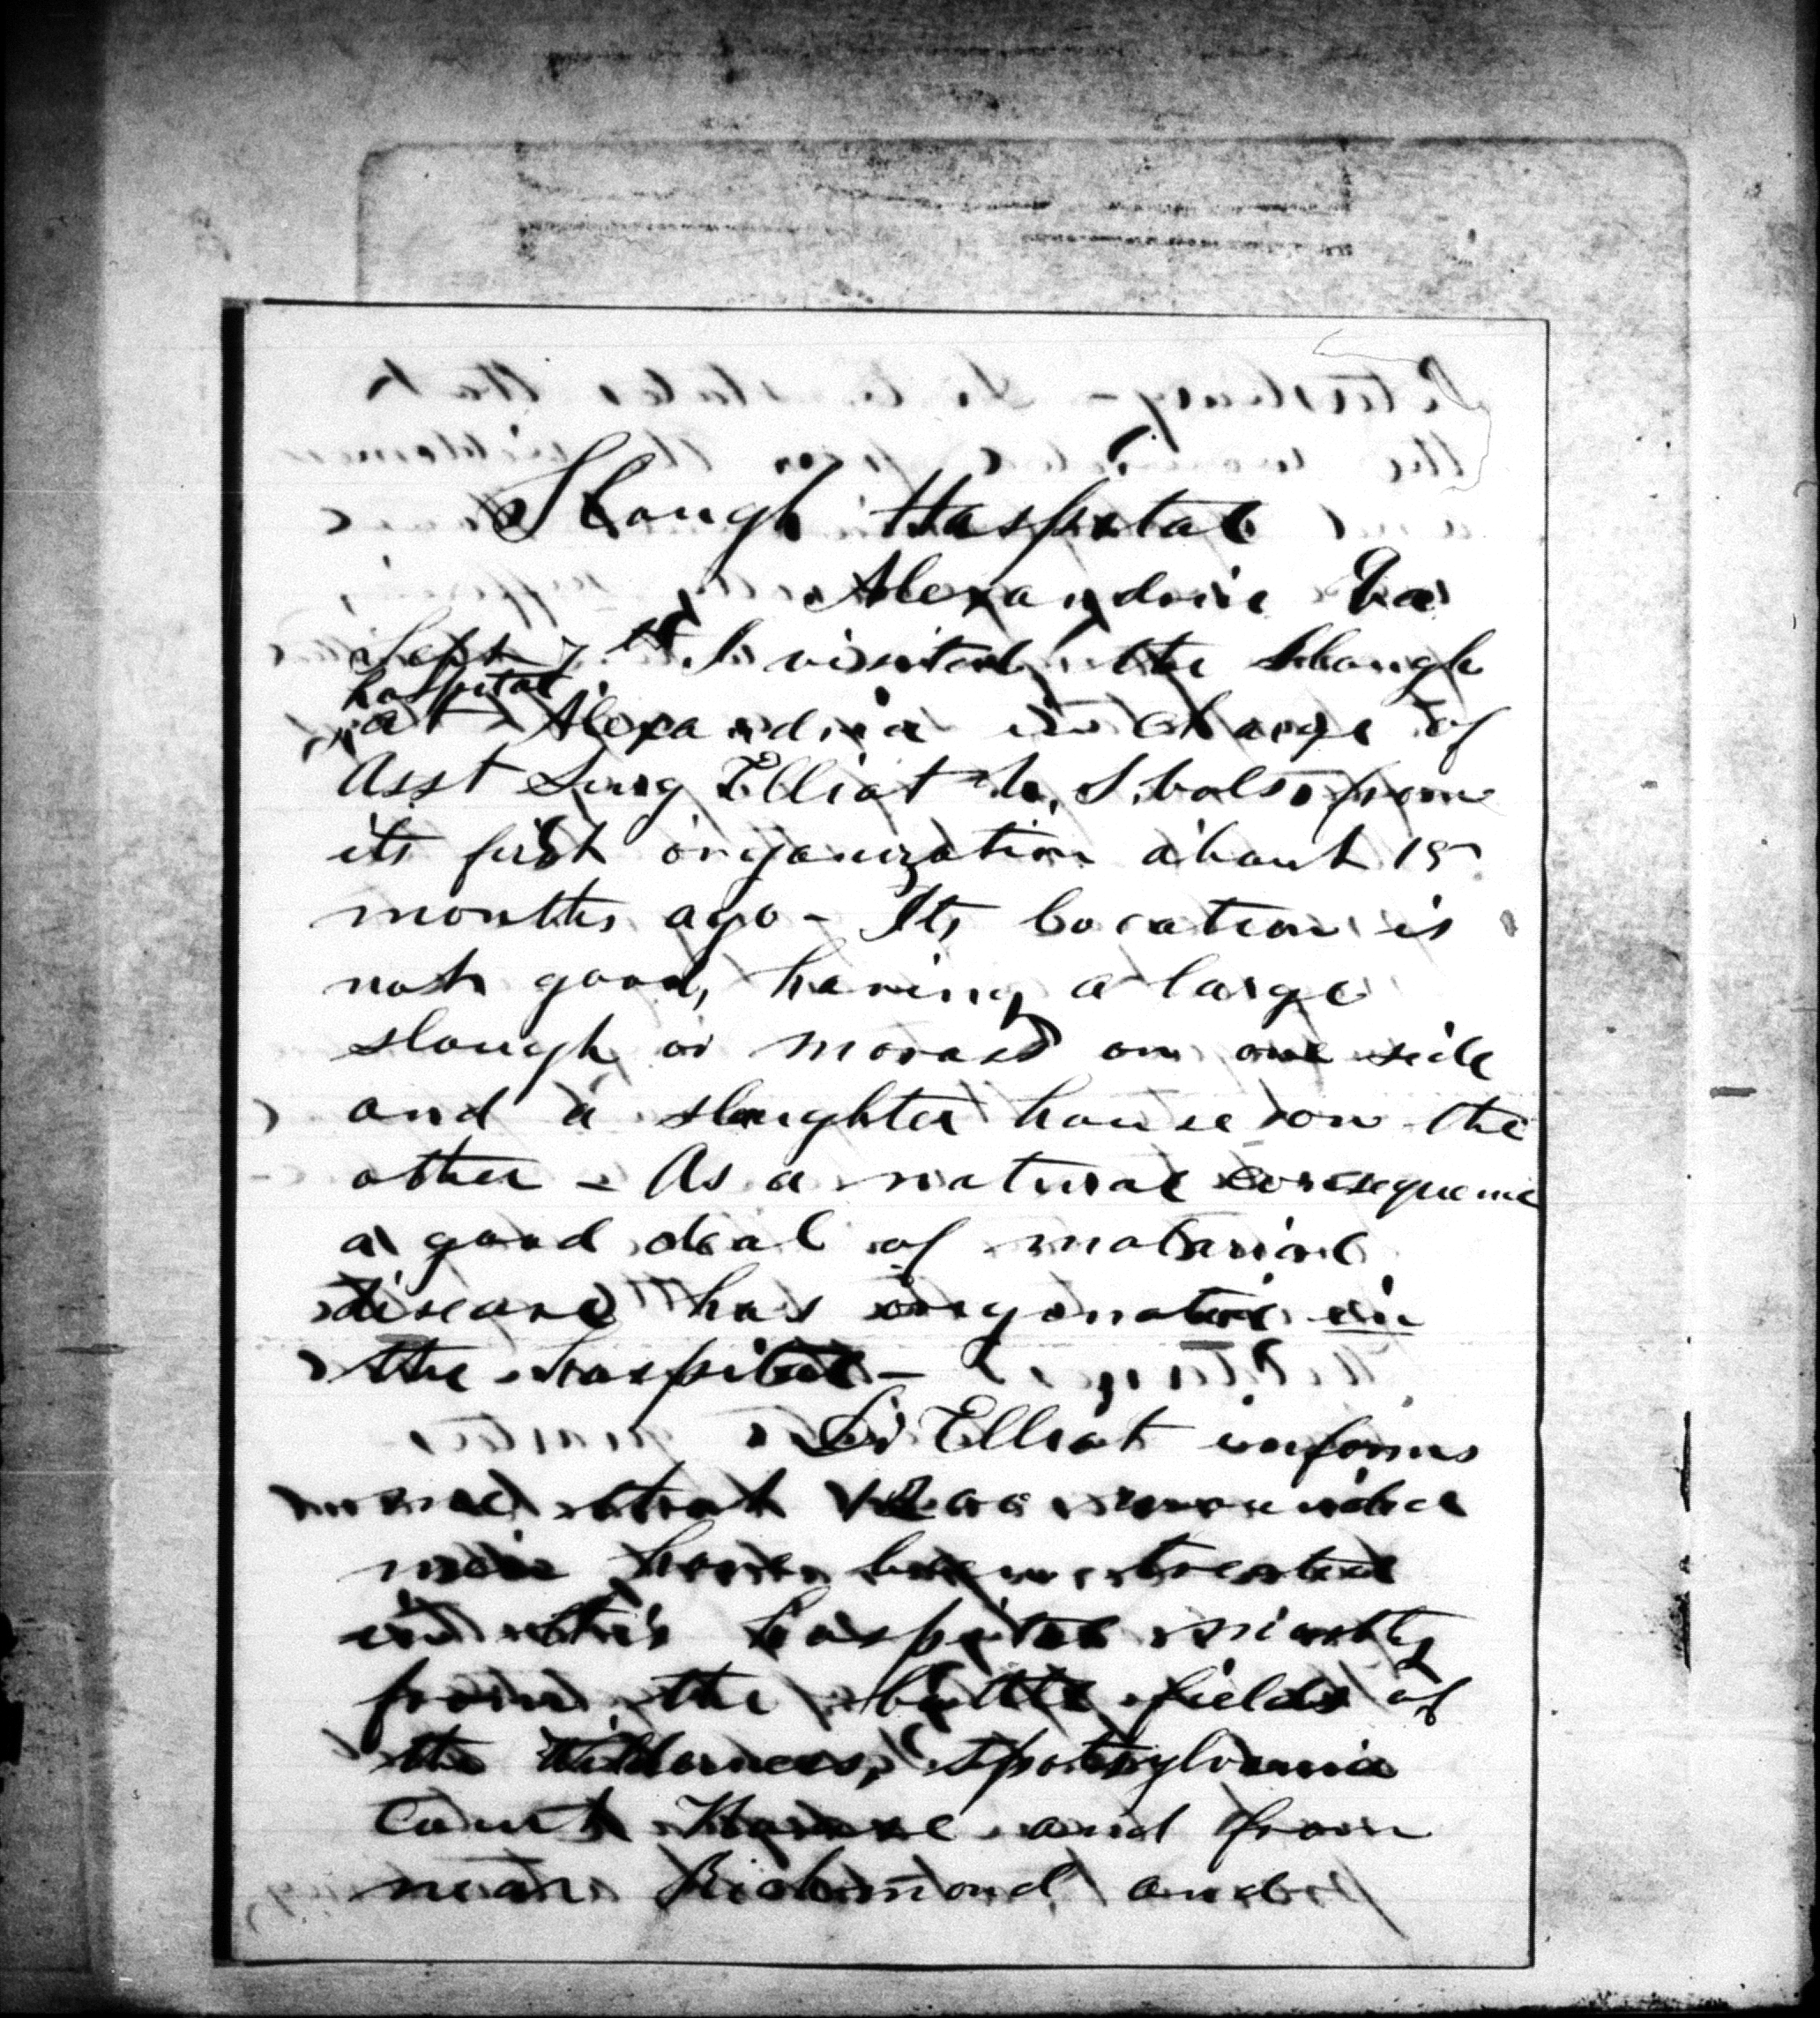 Slough Hospital
Alexandria Va
Sept 7th I visited the Slough
hospital
at Alexandria in charge of
Asst Surg Elliot U.S. Vols from
its first organization about 15
months ago - Its location is
not good, having a large
slough or morass on one side
and a slaughter house on the
other - As a natural consequence
a good deal of malarial
disease has origonated in
the hospital -
Dr Elliot informs
me that wounded
men have been treated
in this hospital mostly
from the battle fields of
the Wilderness, Spotsylvania
Court House and from
near Richmond and